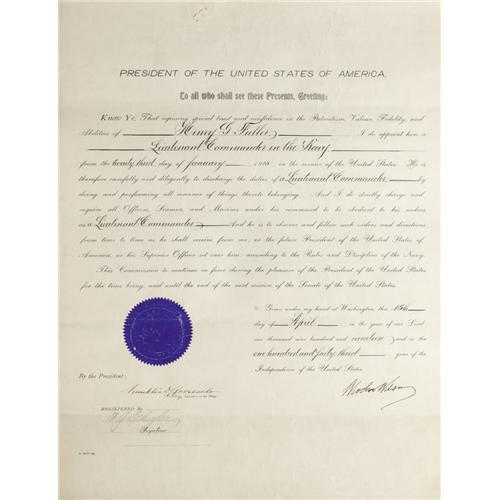 PRESIDENT OF THE UNITED STATES OF AMERICA.
To all who shall see these Presents, Greeting:
Know Ye, That reposing special trust and confidence in the Patriotism, Valour, Fidelity and
Abilities of Henry G Fuller I do appoint him a
Lieutenant Commander in the Navy
from the twenty third day of January 1919 in the service of the United States. He is
therefore carefully and diligently to discharge the duties of a Lieutenant Commander by
doing and performing all manner of things thereto belonging. And I do strictly charge and
require all Officers, Seamen, and Marines under his command to be obedient to his orders
as a Lieutenant Commander And he is to observe and follow such orders and directions
from time to time as he shall receive from me, or the future President of the United States of
America, or his Superior Officer set over him, according to the Rules and Discipline of the Navy.
This Commission to continue in force during the pleasure of the President of the United States
for the time being, and until the end of the next session of the Senate of the United States.
Given under my hand at Washington, this 15th
day of April in the year of our Lord
one thousand nine hundred and nineteen and in the
one hundred and forty third year of the
Independence of the United States.
By the President:
Franklin D Roosevelt
Woodrow Wilson
REGISTERED